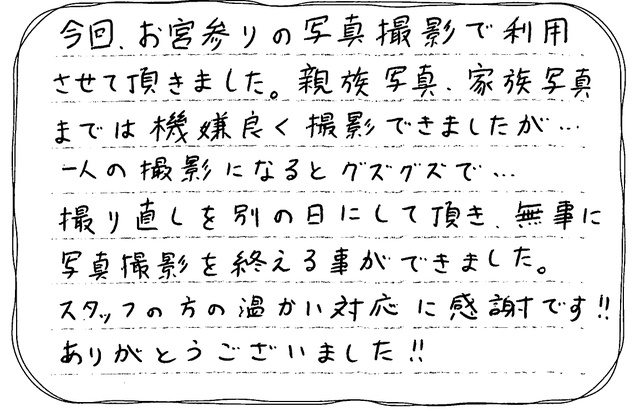 今回、お宮参りの写真撮影で利用
させて頂きました。親族写真、家族写真
までは機嫌良く撮影できましたが…
一人の撮影になるとグズグズで…
撮り直しを別の日にして頂き、無事に
写真撮影を終える事ができました。
スタッフの方の温かい対応に感謝です!!
ありがとうございました!!